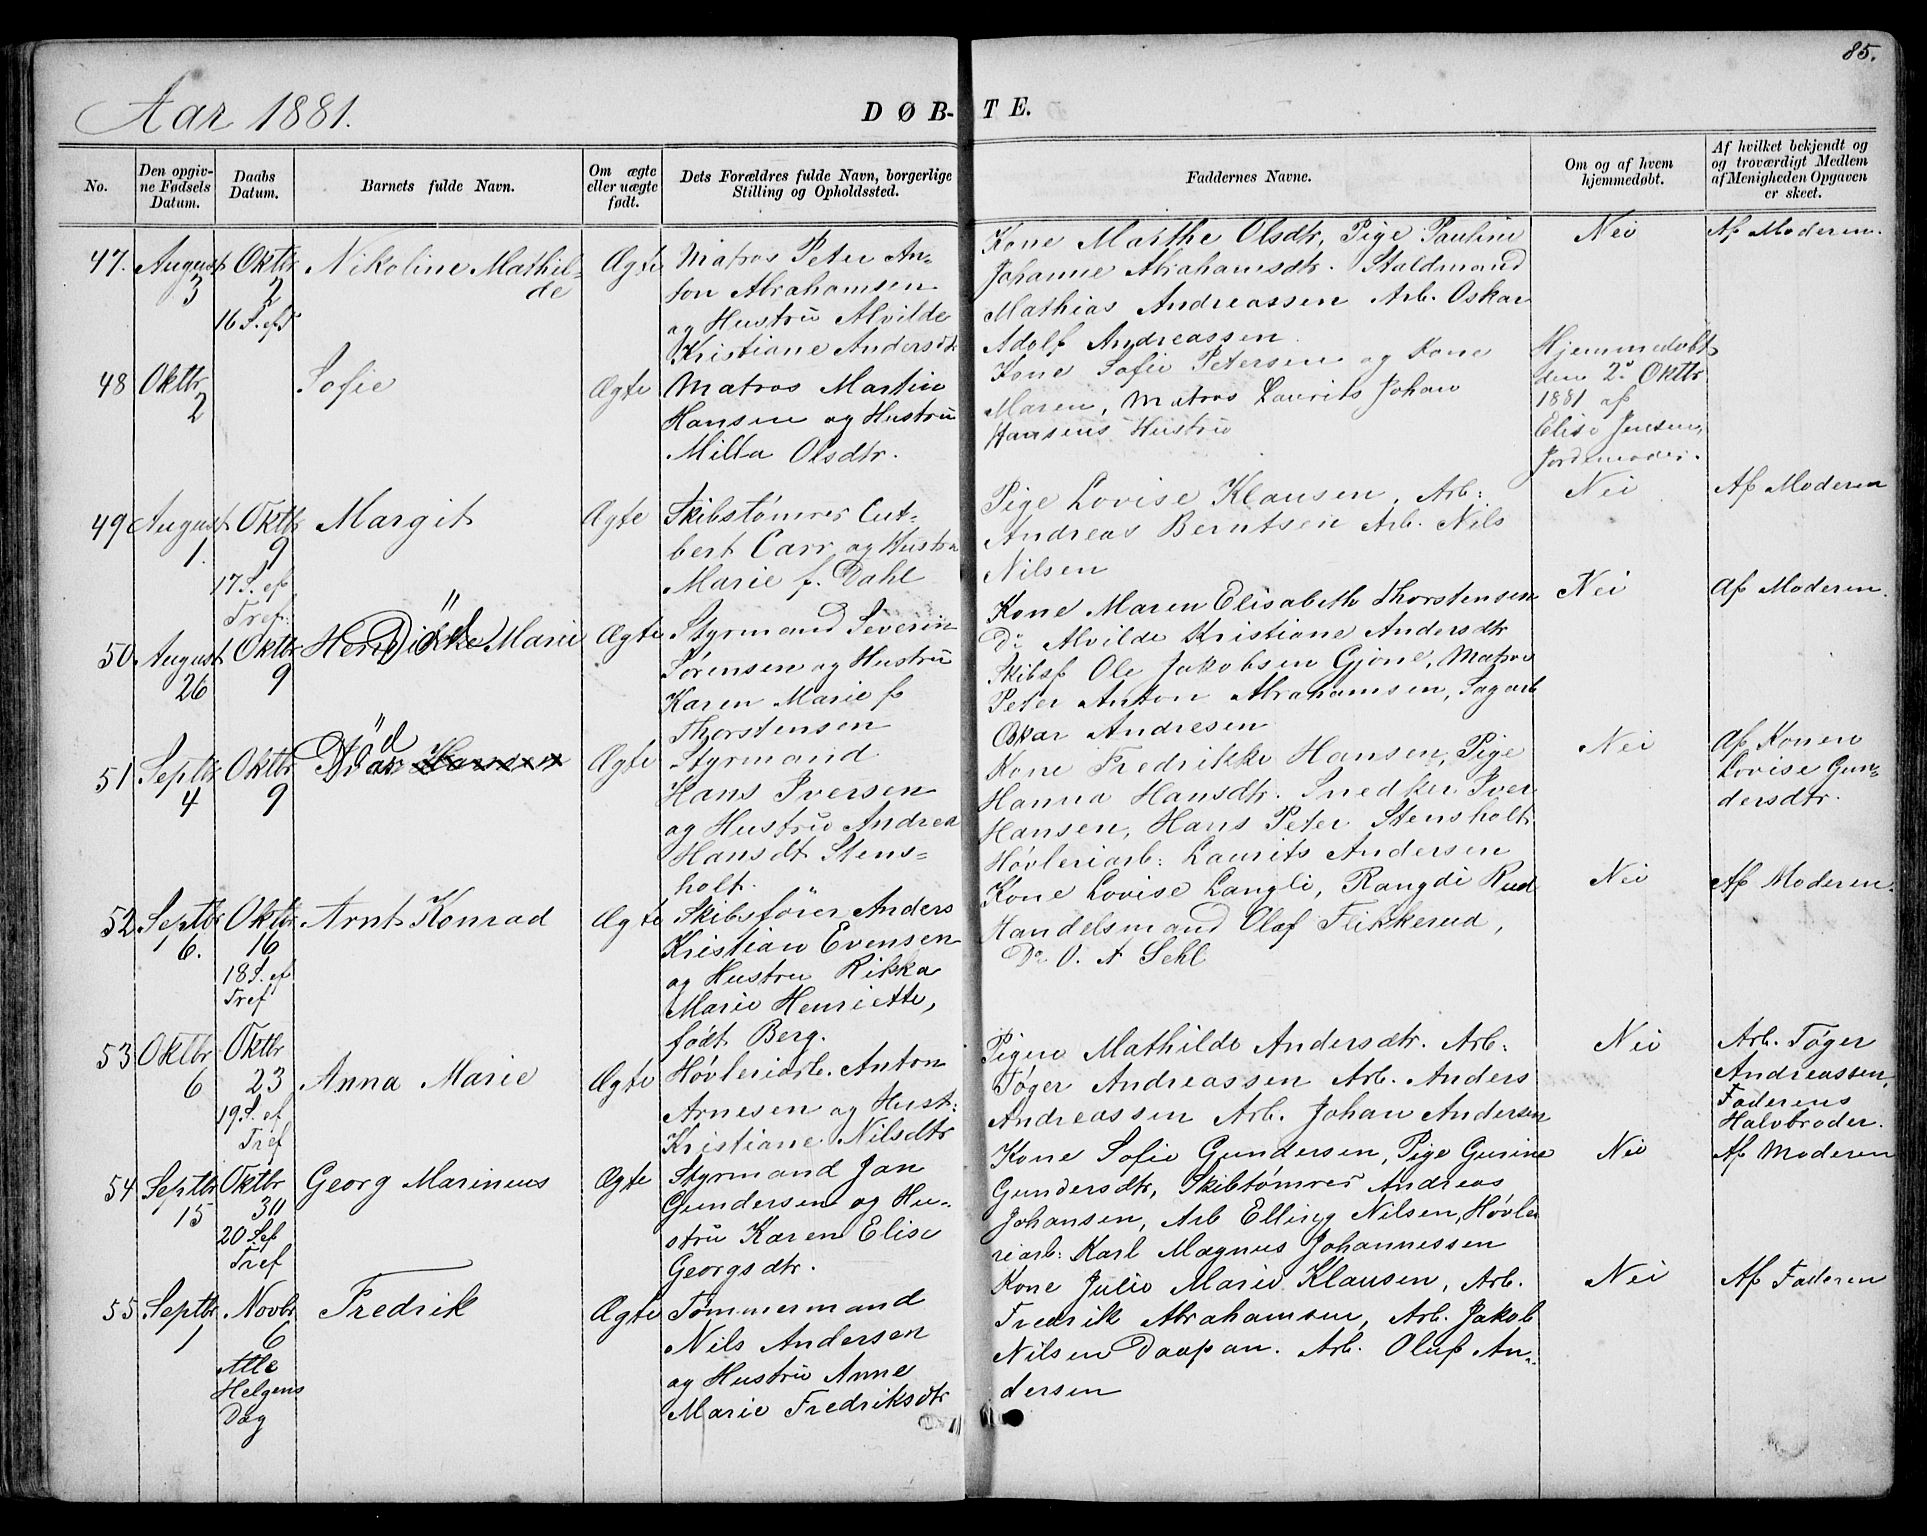 85.
Aar 1881.
DØB-TE.
No.
Den opgiv-
ne Fødsels
Datum.
Daabs
Datum.
Barnets fulde Navn.
Om ægte
eller uægte
født.
Dets Forældres fulde Navn, borgerlige
Stilling og Opholdssted.
Faddernes Navne.
Om og af hvem
hjemmedøbt.
Af hvilket bekjendt og
og troværdigt Medlem
af Menigheden Opgaven
er skeet.
47.
August
3
Oktbr
2
16 S. ef T
Nikoline Mathil-
de
Ægte
Matros Peter An-
ton Abrahamsen
og Hustru Alvilde
Kristiane Andersdtr
Kone Marthe Olsdtr, Pige Pauline
Johanne Abrahamsdtr. Staldmand
Mathias Andreassen Arb. Oskar
Adolf Andreassen
Nei
Af Moderen.
48
Oktbr
2
Sofie
Ægte
Matros Martin
Hansen og Hustru
Milla Olsdtr.
Kone Sofie Petersen og Kone
Maren, Matros Laurits Johan
Hansens Hustru
Hjemmedøbt
den 2. Oktbr
1881 af
Elise Jensen,
Jordemoder.
49
August
1.
Oktbr
9
17 S. ef
Tref.
Margit
Ægte
Skibstømrer Cut-
bert Carr og Hustru
Marie f. Dahl
Pige Lovise Klausen, Arb:
Andreas Berntsen Arb. Nils
Nilsen
Nei
Af Moderen
50.
August
26
Oktbr
9
Henrikke Marie
Död
Ægte
Styrmand Severin
Sørensen og Hustru
Karen Marie f
Thorstensen
Kone Maren Elisabeth Thorstensen
Do Alvilde Kristiane Andersdtr
Skibsf Ole Jakobsen Gjone, Matros
Peter Anton Abrahamsen, Sagarb
Oskar Andresen
Nei
Af Moderen.
51
Septbr
4
Oktbr
9
Död
Ivar Hansen
Ægte
Styrmand
Hans Iversen
og Hustru Andrea
Hansdt Stens-
holt.
Kone Fredrikke Hansen, Pige
Hanna Hansdtr. Snedker Iver
Hansen, Hans Peter Stensholt
Høvleriarb: Laurits Andersen
Nei
Af Konen
Lovise Gun-
dersdtr.
52
Septbr
6.
Oktbr
16
18 S. ef
Tref
Arnt Konrad
Ægte
Skibsfører Anders
Kristian Evensen
og Hustru Rikka
Marie Henriette,
født Berg.
Kone Lovise Langli, Rangdi Rud
Handelsmand Olaf Flikkerud,
Do O. A Sehl
Nei
Af Moderen.
53
Oktbr
6
Oktbr
23
19 S. ef
Tref
Anna Marie
Ægte
Høvleriarb. Anton
Arnesen og Hust:
Kristiane Nilsdtr
Pigen Mathilde Andersdtr. Arb:
Tøger Andreassen Arb. Anders
Andreassen Arb. Johan Andersen
Nei
Arb. Tøger
Andreassen,
Faderens
Halvbroder.
54
Septbr
15
Oktbr
30
20 S ef
Tref
Georg Marinius
Ægte
Styrmand Jan
Gundersen og Hu-
stru Karen Elise
Georgsdtr.
Kone Sofie Gundersen, Pige Gurine
Gundersdtr, Skibtømrer Andreas
Johansen, Arb Elling Nilsen, Høvle
riarb: Karl Magnus Johannessen
Nei
Af Moderen
55
Septbr
1
Novbr
6
Alle
Helgens
Dag
Fredrik
Ægte
Tømmermand
Nils Andersen
og Hustru Anne
Marie Fredriksdtr
Kone Julie Marie Klausen, Arb.
Fredrik Abrahamsen, Arb. Jakob
Nilsen Daapan. Arb. Oluf An-
dersen
Nei
Af Faderen